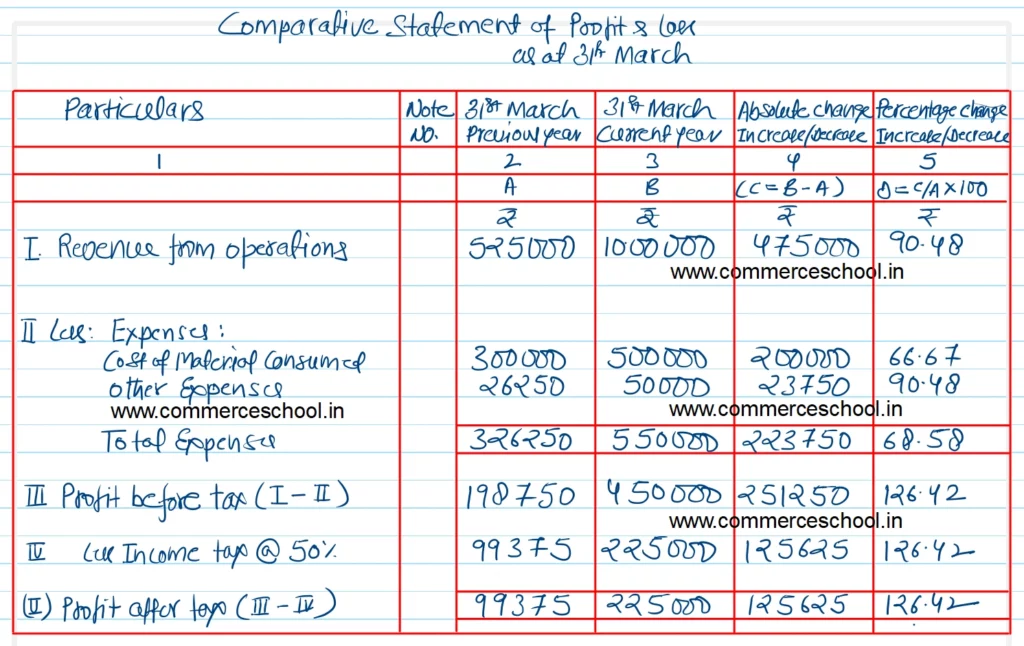 Comparative Statement of Profit & Loss
as at 31st March
Particulars Note No. 31st March Previous year 31st March Current year Absolute change Increase/Decrease Percentage change Increase/Decrease
1 2 3 4 5
A B (C=B-A) D=C/A×100
₹ ₹ ₹ ₹
I. Revenue from operations 525000 1000000 475000 90.48
www.commerceschool.in
II Less: Expenses:
Cost of Material Consumed 300000 500000 200000 66.67
Other Expenses 26250 50000 23750 90.48
www.commerceschool.in www.commerceschool.in
Total Expenses 326250 550000 223750 68.58
III Profit before tax (I-II) 198750 450000 251250 126.42
www.commerceschool.in
IV Less Income tax @ 50% 99375 225000 125625 126.42
(II) Profit after tax (III-IV) 99375 225000 125625 126.42